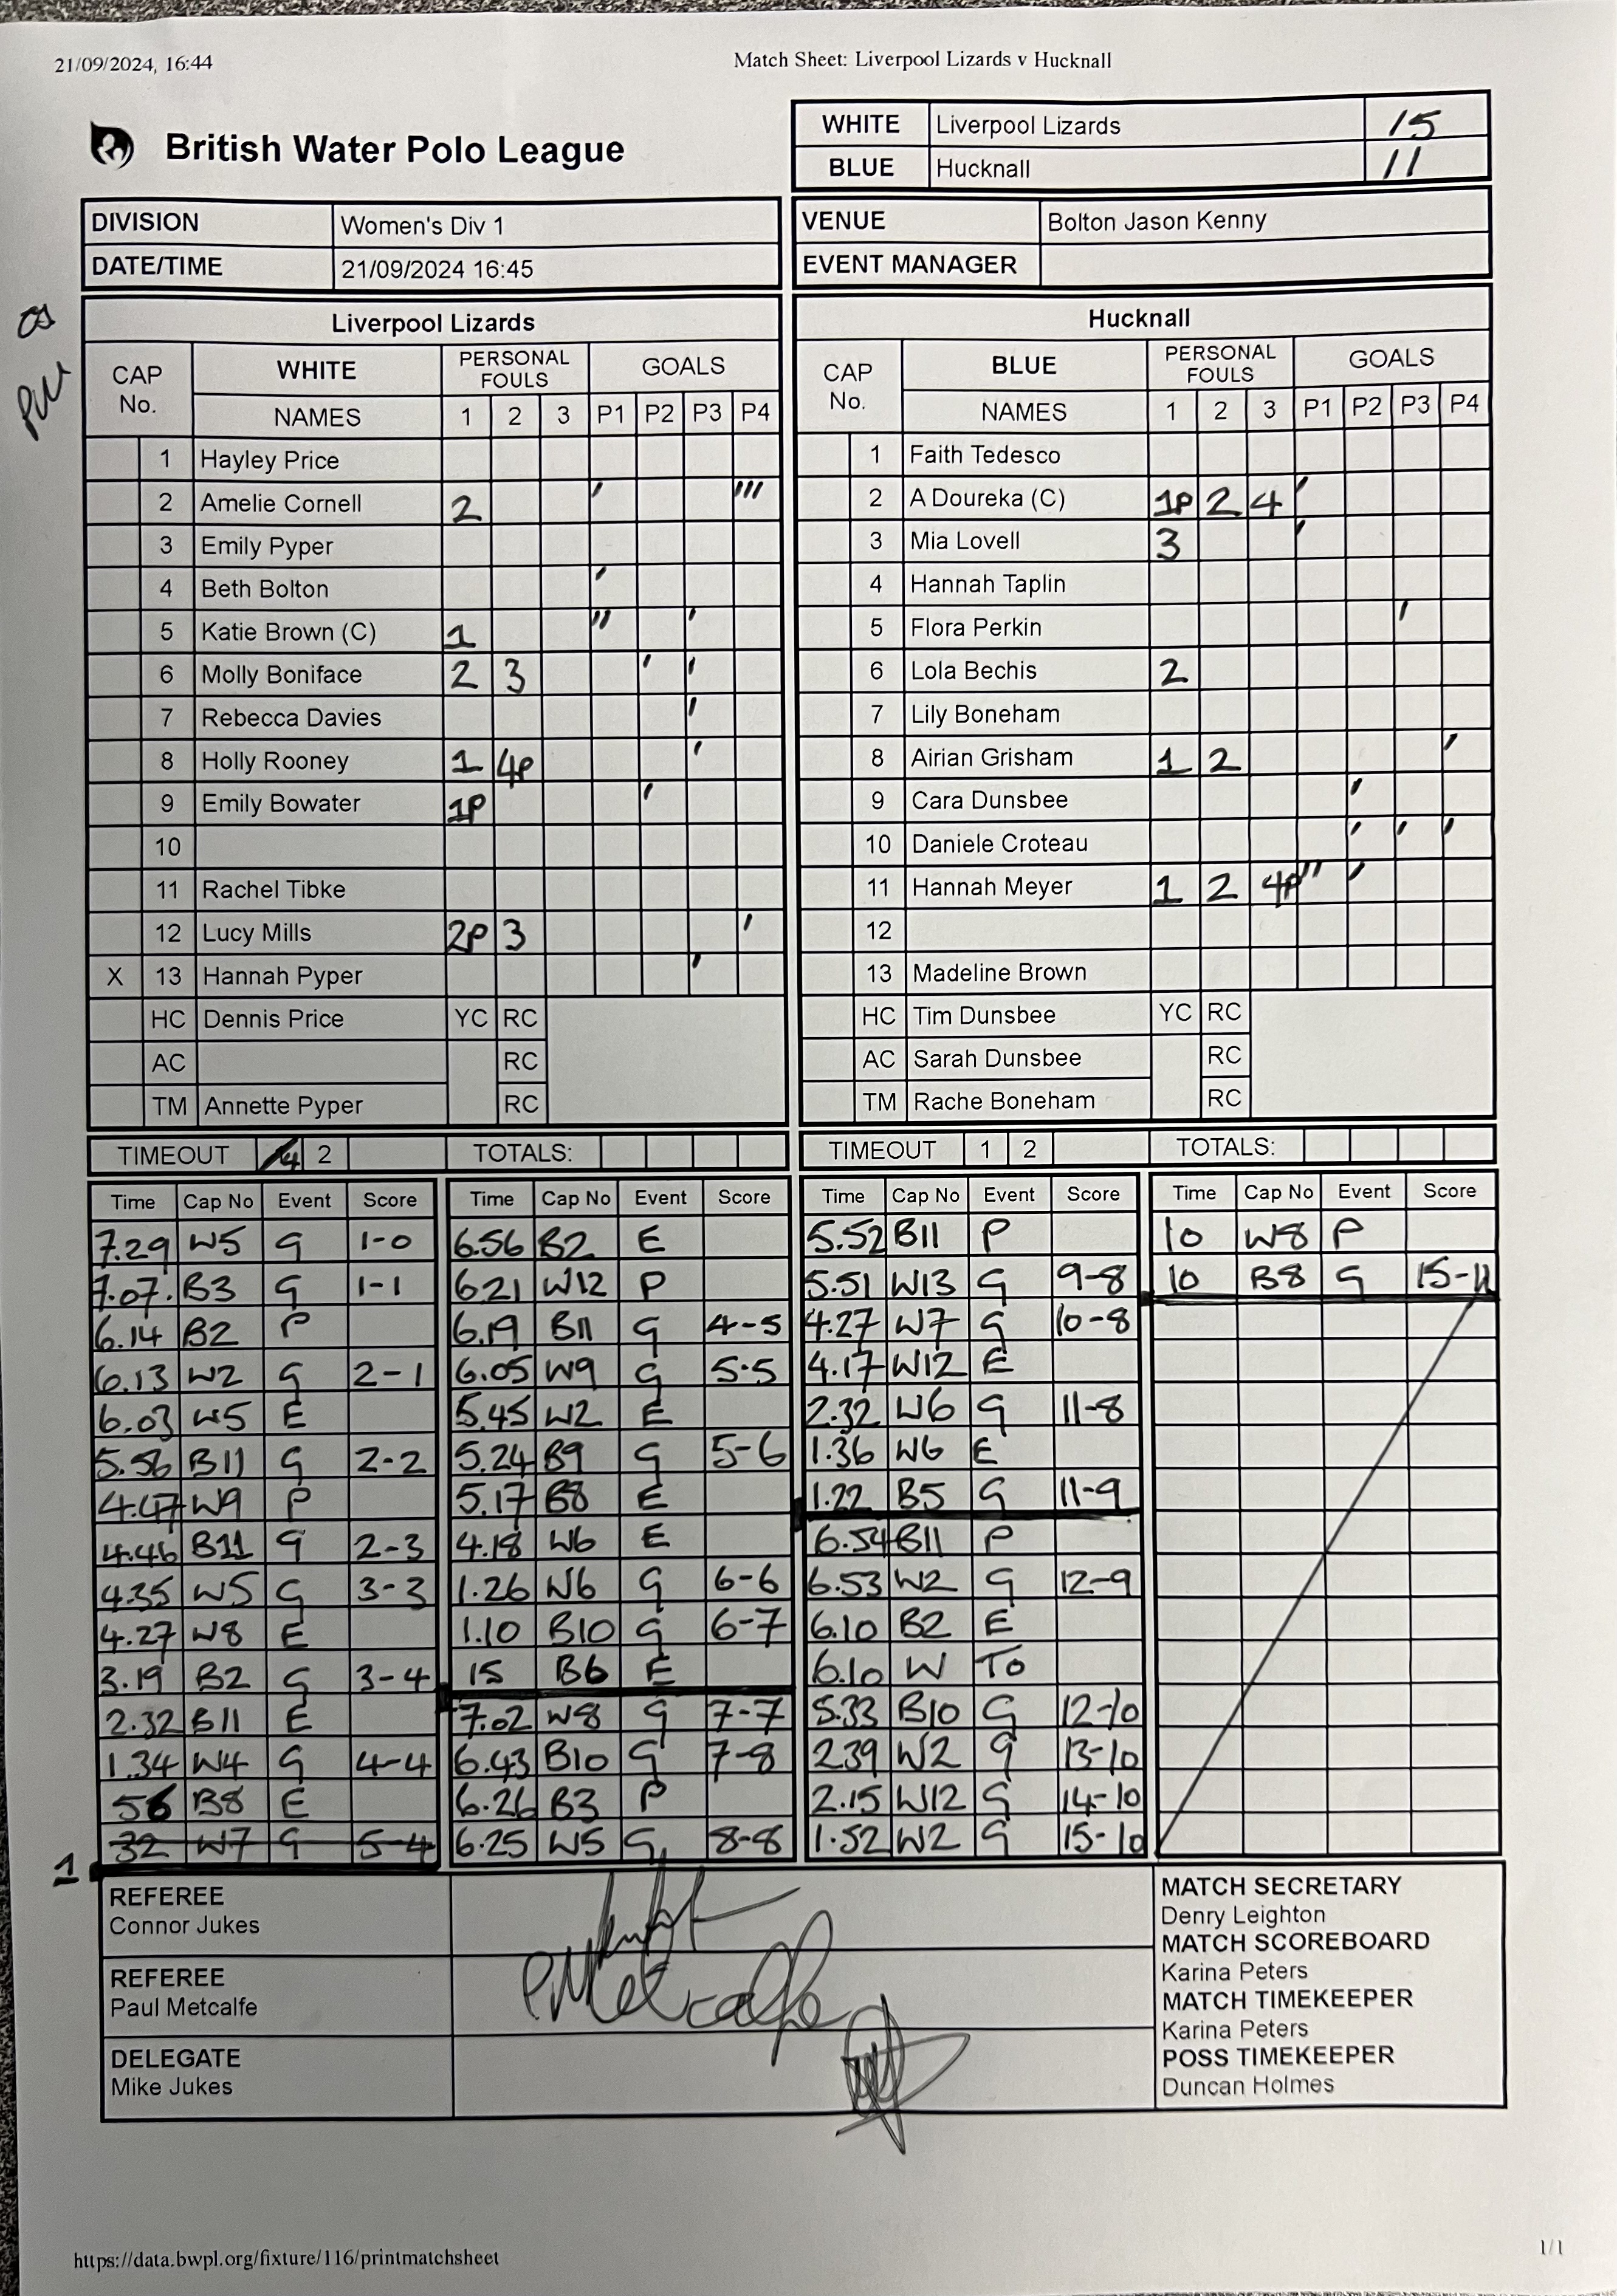 21/09/2024, 16:44 Match Sheet: Liverpool Lizards v Hucknall
British Water Polo League
WHITE Liverpool Lizards 15
BLUE Hucknall 11
DIVISION Women's Div 1
DATE/TIME 21/09/2024 16:45
VENUE Bolton Jason Kenny
EVENT MANAGER
Liverpool Lizards
CAP No. WHITE PERSONAL FOULS GOALS
NAMES 1 2 3 P1 P2 P3 P4
1 Hayley Price
2 Amelie Cornell 2 ' '''
3 Emily Pyper
4 Beth Bolton '
5 Katie Brown (C) 1 '' '
6 Molly Boniface 2 3 ' '
7 Rebecca Davies '
8 Holly Rooney 1 4P '
9 Emily Bowater 1P '
10
11 Rachel Tibke
12 Lucy Mills 2P 3 '
X 13 Hannah Pyper '
HC Dennis Price YC RC
AC RC
TM Annette Pyper RC
TIMEOUT 4 2 TOTALS:
Hucknall
CAP No. BLUE PERSONAL FOULS GOALS
NAMES 1 2 3 P1 P2 P3 P4
1 Faith Tedesco
2 A Doureka (C) 1P 2 4 '
3 Mia Lovell 3 '
4 Hannah Taplin
5 Flora Perkin '
6 Lola Bechis 2
7 Lily Boneham
8 Airian Grisham 1 2 '
9 Cara Dunsbee '
10 Daniele Croteau ' ' '
11 Hannah Meyer 1 2 4P '' '
12
13 Madeline Brown
HC Tim Dunsbee YC RC
AC Sarah Dunsbee RC
TM Rache Boneham RC
TIMEOUT 1 2 TOTALS:
Time Cap No Event Score
7.29 W5 G 1-0
7.07. B3 G 1-1
6.14 B2 P
6.13 W2 G 2-1
6.03 W5 E
5.56 B11 G 2-2
4.47 W9 P
4.46 B11 G 2-3
4.35 W5 G 3-3
4.27 W8 E
3.19 B2 G 3-4
2.32 B11 E
1.34 W4 G 4-4
56 B8 E
32 W7 G 5-4
1
Time Cap No Event Score
6.56 B2 E
6.21 W12 P
6.19 B11 G 4-5
6.05 W9 G 5-5
5.45 W2 E
5.24 B9 G 5-6
5.17 B8 E
4.18 W6 E
1.26 W6 G 6-6
1.10 B10 G 6-7
15 B6 E
7.02 W8 G 7-7
6.43 B10 G 7-8
6.26 B3 P
6.25 W5 G 8-8
Time Cap No Event Score
5.52 B11 P
5.51 W13 G 9-8
4.27 W7 G 10-8
4.17 W12 E
2.32 W6 G 11-8
1.36 W6 E
1.22 B5 G 11-9
6.54 B11 P
6.53 W2 G 12-9
6.10 B2 E
6.10 W TO
5.33 B10 G 12-10
2.39 W2 G 13-10
2.15 W12 G 14-10
1.52 W2 G 15-10
Time Cap No Event Score
10 W8 P
10 B8 G 15-11
REFEREE
Connor Jukes
REFEREE
Paul Metcalfe
PMetcalfe
DELEGATE
Mike Jukes
MATCH SECRETARY
Denry Leighton
MATCH SCOREBOARD
Karina Peters
MATCH TIMEKEEPER
Karina Peters
POSS TIMEKEEPER
Duncan Holmes
https://data.bwpl.org/fixture/116/printmatchsheet 1/1